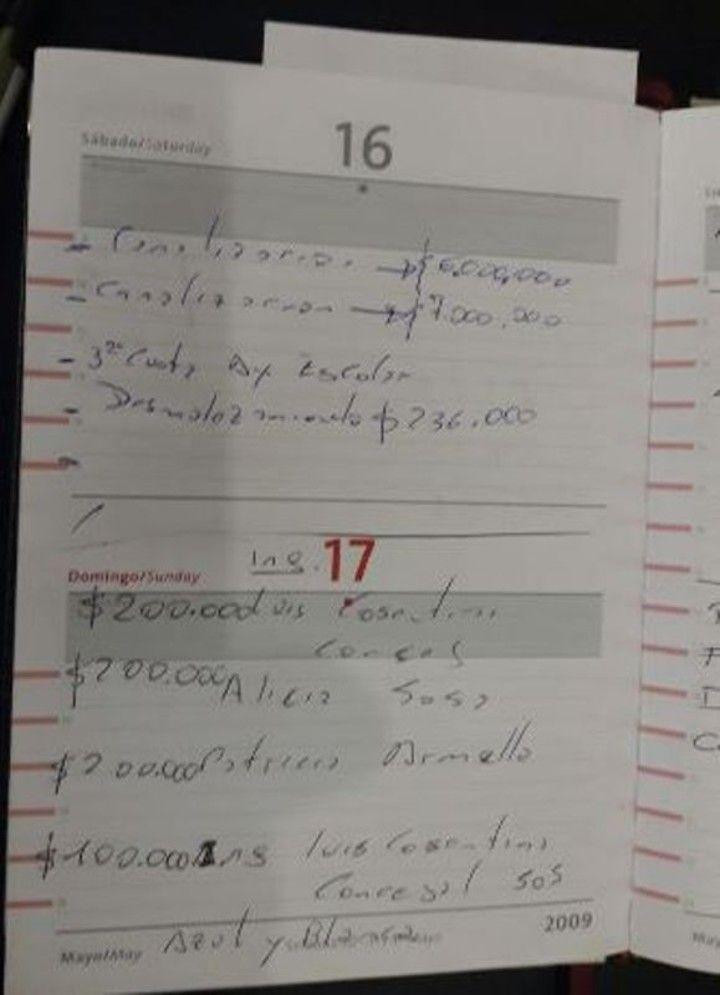 Sábado/Saturday
16
- Canalizacion → $6.000.000
- Canalizacion → $7.000.000
- 3ra Cuota Ay Escolar
- Desmalezamiento $236.000
-
Ing. 17
Domingo/Sunday
$200.000 Luis Cosentini
Concejal
$200.000 Alicia Sosa
$200.000 Patricia Armello
$100.000 Ing Luis Cosentini
Concejal SOS
Azul y
2009
Mayo/May